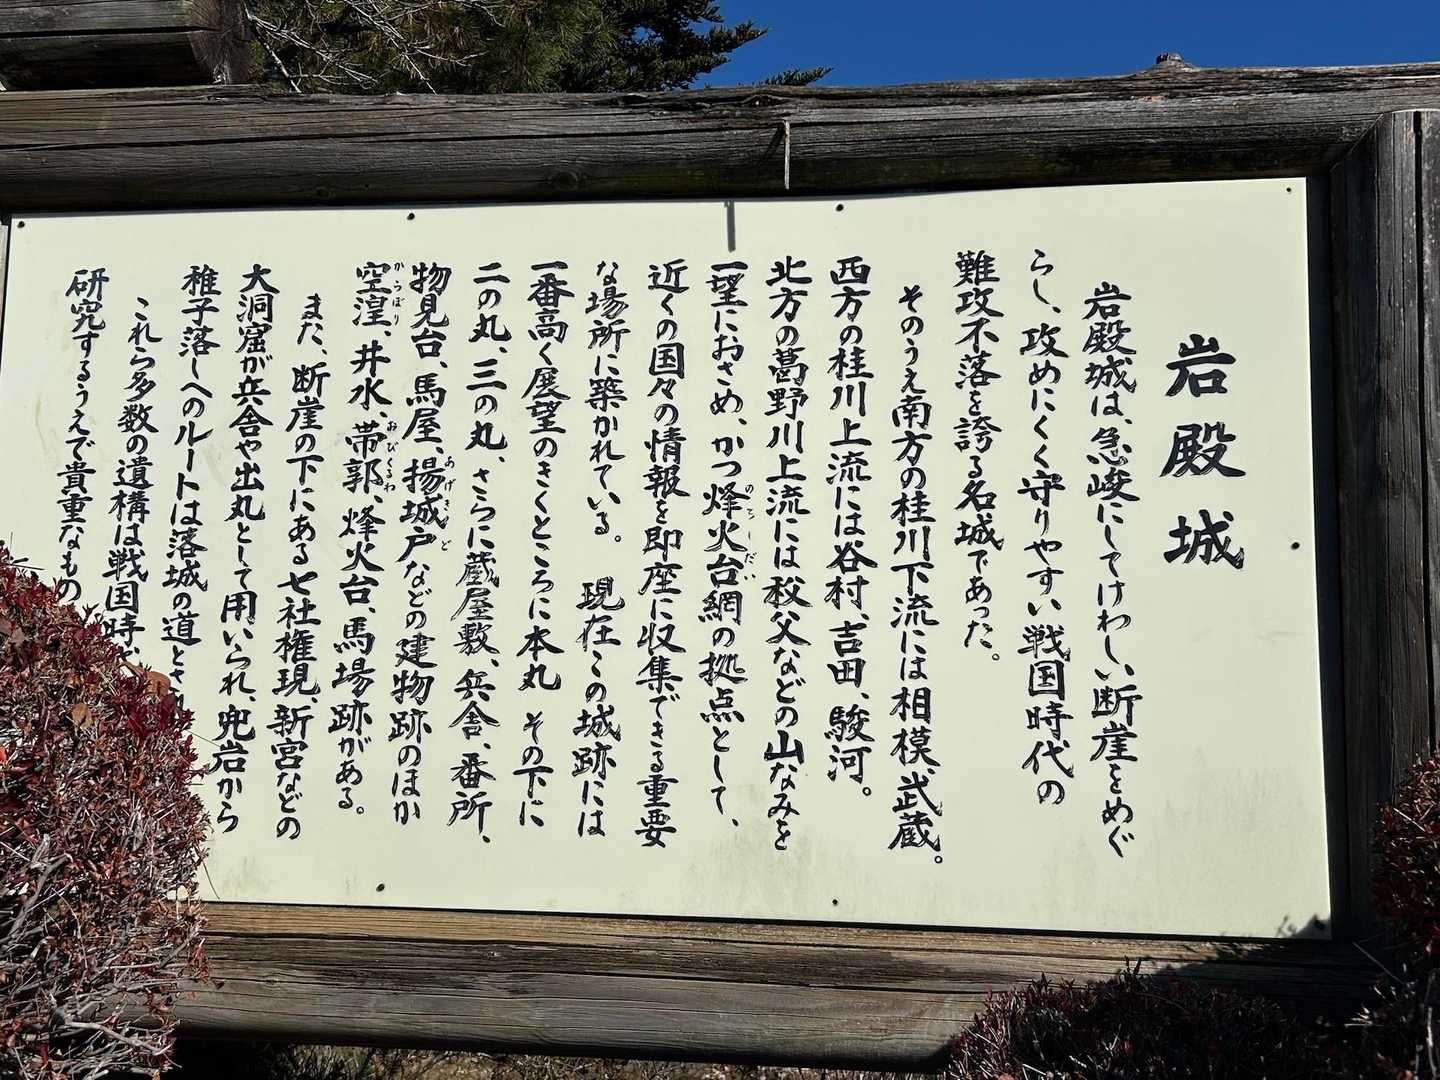 岩殿城
岩殿城は、急峻にしてけわしい断崖をめぐ
らし、攻めにくく守りやすい戦国時代の
難攻不落を誇る名城であった。
そのうえ南方の桂川下流には相模、武蔵。
西方の桂川上流には谷村、吉田、駿河。
北方の葛野川上流には秩父などの山なみを
一望におさめ、かつ烽火台網の拠点として、
のろしだい
近くの国々の情報を即座に収集できる重要
な場所に築かれている。 現在この城跡には
一番高く展望のきくところに本丸 その下に
二の丸、三の丸、さらに蔵屋敷、兵舎、番所、
物見台、馬屋、揚城戸などの建物跡のほか
あげきど
空湟、井水、帯郭、烽火台、馬場跡がある。
からぼり おびくるわ
また、断崖の下にある七社権現、新宮などの
大洞窟が兵舎や出丸として用いられ、兜岩から
稚子落しへのルートは落城の道とさ
これら多数の遺構は戦国時
研究するうえで貴重なもの